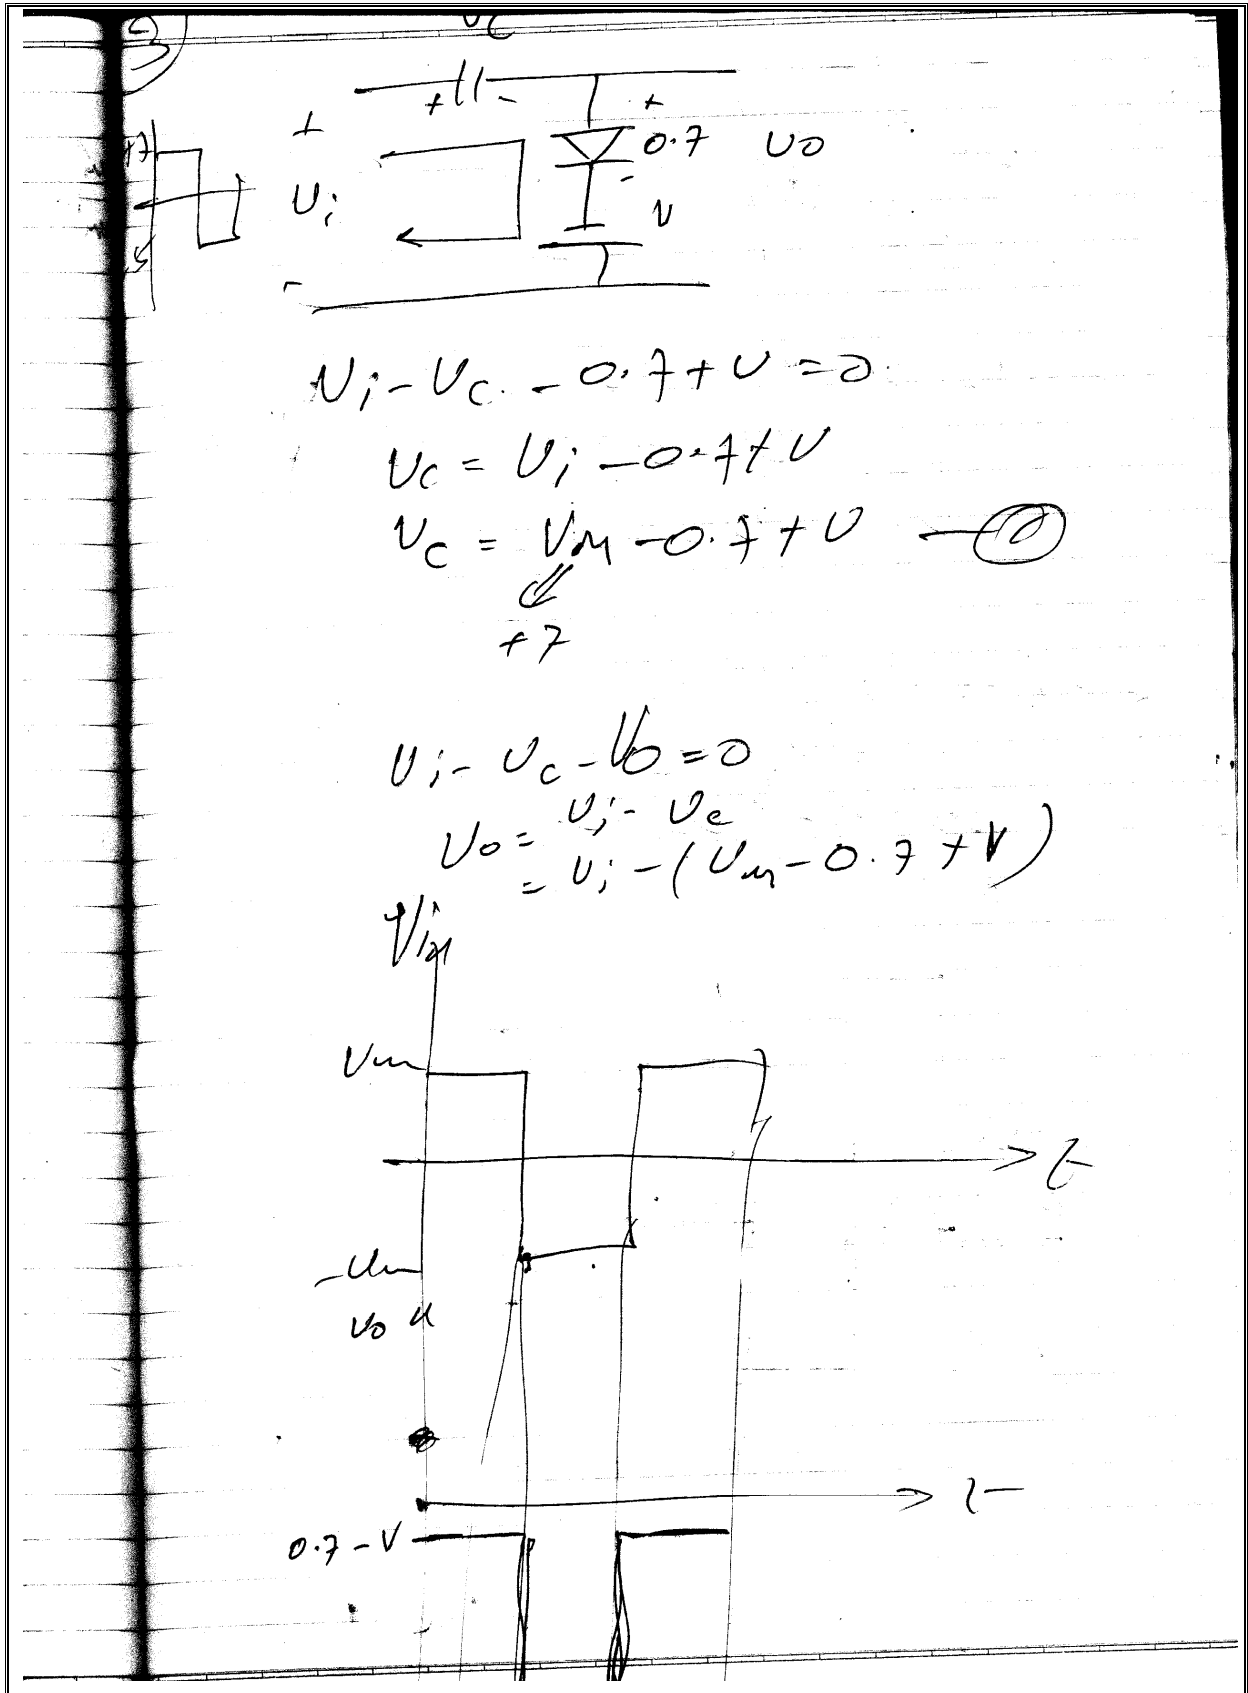 3
Vc
+ -
+
+7
0.7 Vo
Vi
-
V
-5
-
Vi - Vc - 0.7 + V = 0
Vc = Vi - 0.7 + V
Vc = Vm - 0.7 + V
+7
Vi - Vc - Vo = 0
Vo = Vi - Vc
= Vi - (Vm - 0.7 + V)
Vin
Vm
t
-Vm
Vo
t
0.7 - V